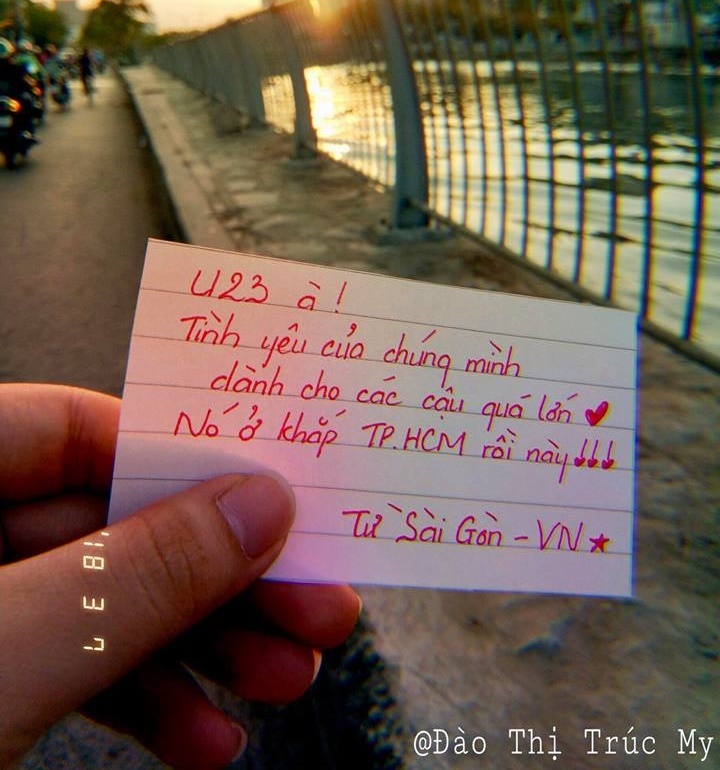 U23 à!
Tình yêu của chúng mình
dành cho các cậu quá lớn
Nó ở khắp TP.HCM rồi này!!!
Từ Sài Gòn - VN
'18 3 7
@Đào Thị Trúc My